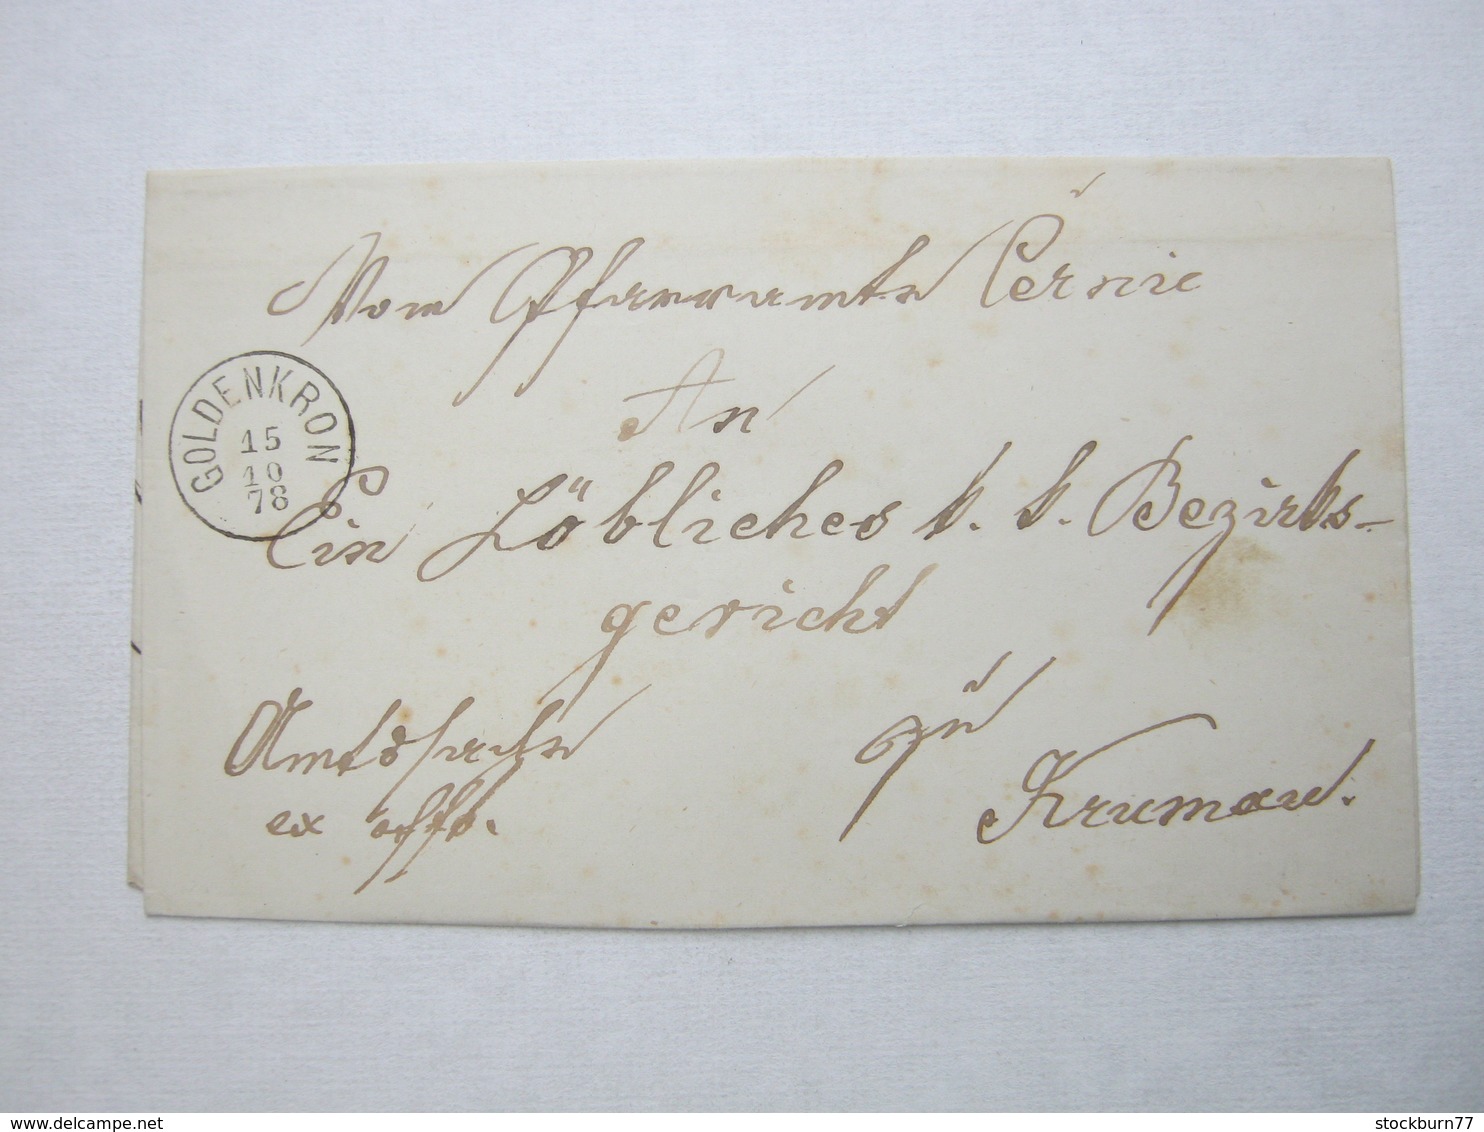 Vom Pfarramte Černic
An
GOLDENKRON
15
10
78
Ein Löbliches k. k. Bezirks-
gericht
Amtssache
zu
ex offo.
Krumau.
stockburn77